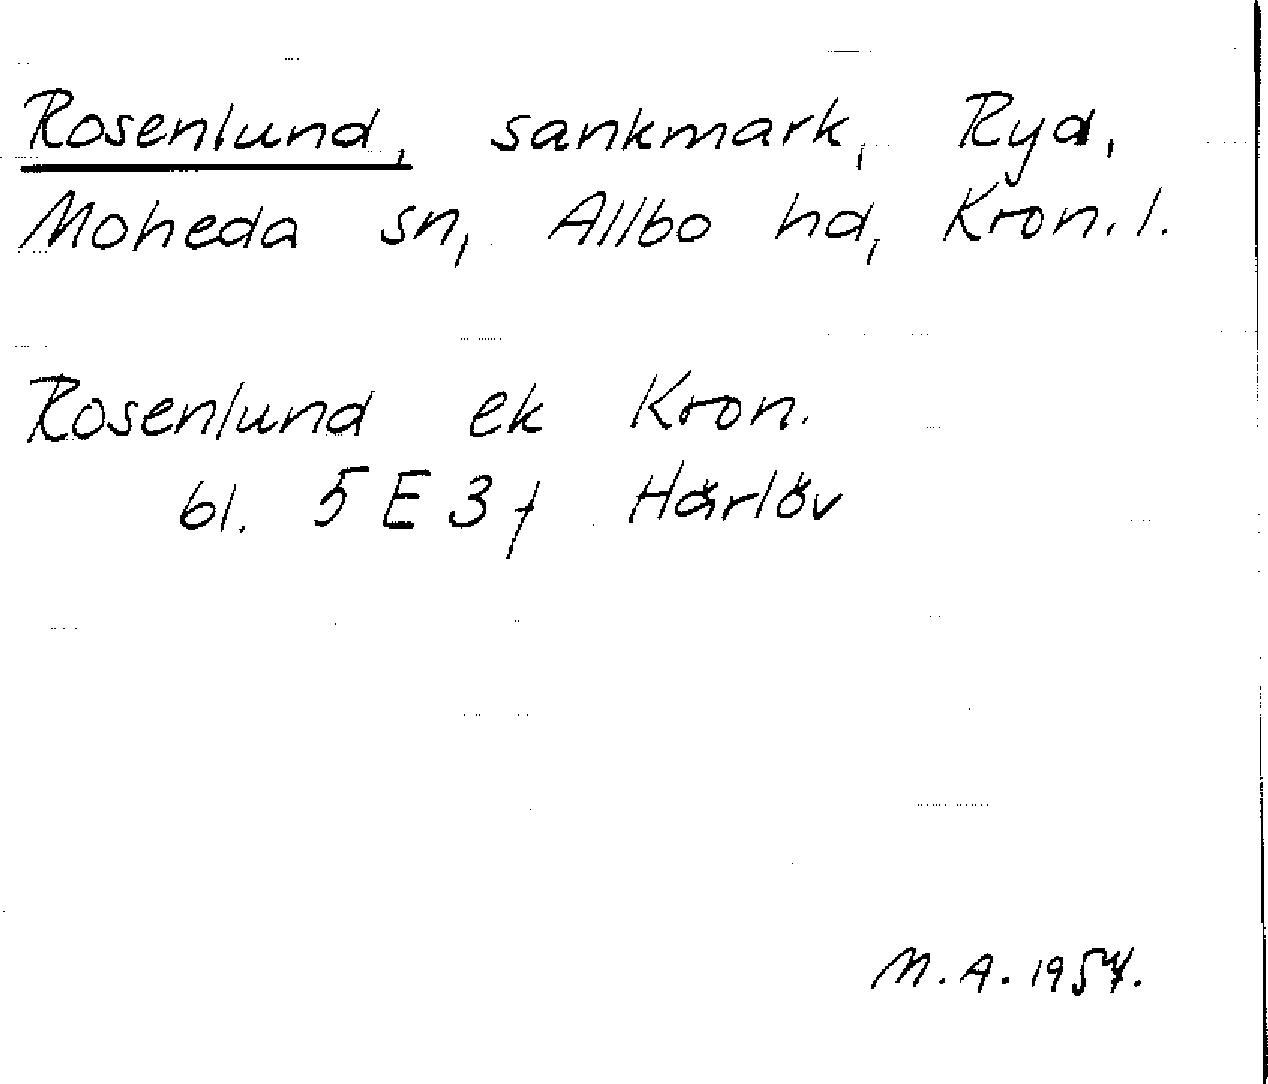 Rosenlund, sankmark, Ryd,
Moheda sn, Allbo hd, Kron. l.
Rosenlund ek Kron.
bl. 5 E 3 f Härlöv
M. A. 1954.